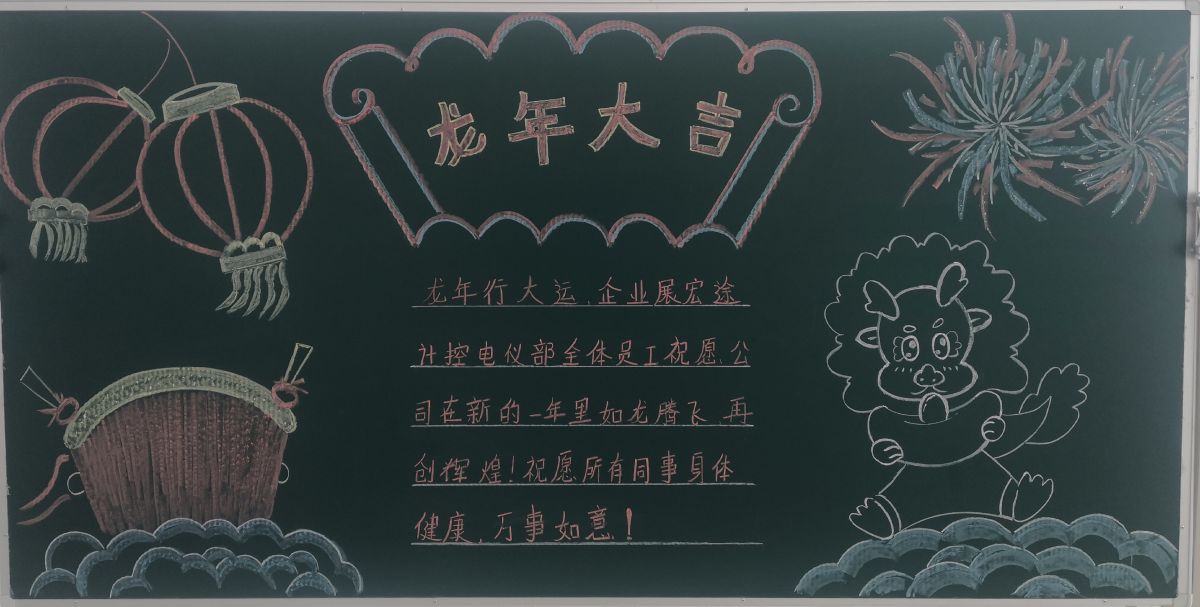 龙年大吉
龙年行大运，企业展宏途
计控电仪部全体员工祝愿公
司在新的一年里如龙腾飞，再
创辉煌！祝愿所有同事身体
健康，万事如意！